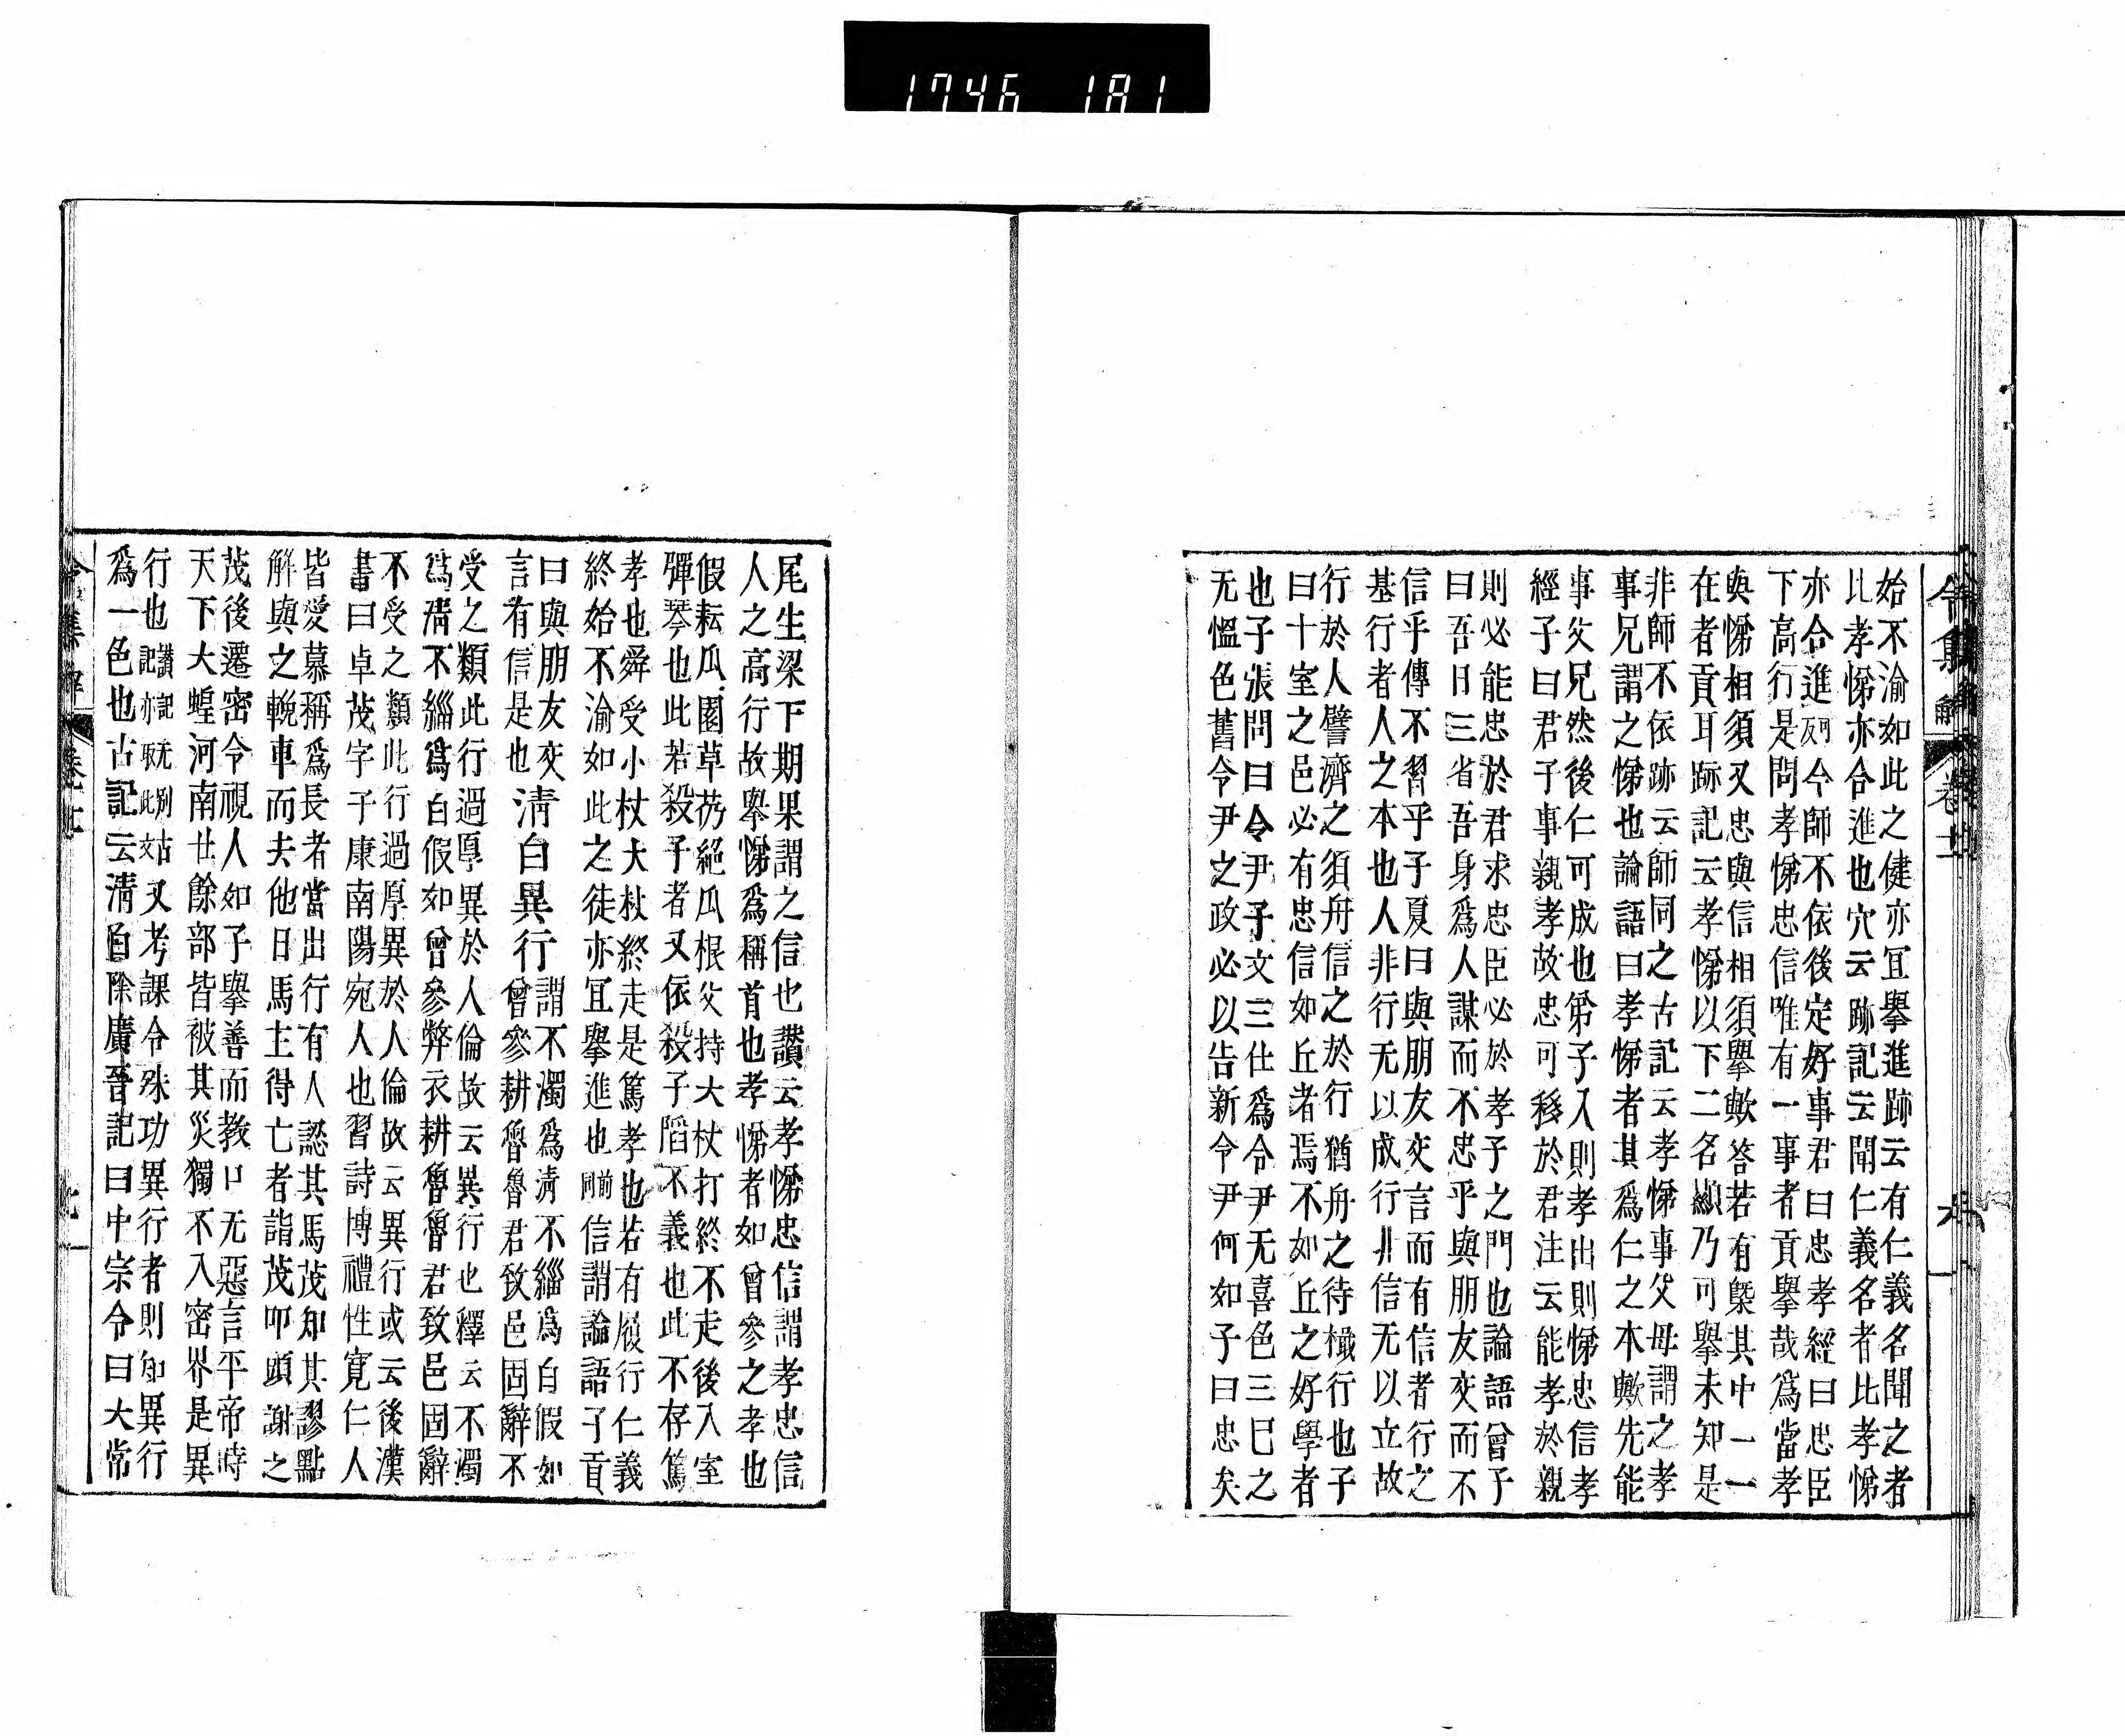 1746 181
令集解 卷廿
始不渝如此之健亦冝擧進跡云有仁義名聞之者
比孝悌亦合進也穴云跡記云聞仁義名者比孝悌
亦合進阿反今師不依後定好事君曰忠孝經曰忠臣
下高行是問孝悌忠信唯有一事者貢擧哉爲當孝
與悌相須又忠與信相須擧歟答若有槩其中一一
在者貢耳跡記云孝悌以下二名顯乃可擧未知是
非師不依跡云師同之古記云孝悌事父母謂之孝
事兄謂之悌也論語曰孝悌者其爲仁之本歟先能
事父兄然後仁可成也弟子入則孝出則悌忠信孝
經子曰君子事親孝故忠可移於君注云能孝於親
則必能忠於君求忠臣必於孝子之門也論語曾子
曰吾日三省吾身爲人謀而不忠乎與朋友交而不
信乎傳不習乎子夏曰與朋友交言而有信者行之
基行者人之本也人非行无以成行非信无以立故
行於人譬濟之須舟信之於行猶舟之待檝行也子
曰十室之邑必有忠信如丘者焉不如丘之好學者
也子張問曰令尹子文三仕爲令尹无喜色三巳之
无慍色舊令尹之政必以告新令尹何如子曰忠矣
尾生梁下期果謂之信也讃云孝悌忠信謂孝忠信
人之高行故擧悌爲稱首也孝悌者如曾參之孝也
假耘瓜園草芿絕瓜根父持大杖打終不走後入室
彈琴也此若殺子者又依殺子陷不義也此不存篤
孝也舜受小杖大杖終走是篤孝也若有履行仁義
終始不渝如此之徒亦冝擧進也同前信謂論語子貢
曰與朋友交
言有信是也
清白異行
謂不濁爲淸不緇爲白假如
曾參耕魯魯君致邑固辭不
受之類此行過厚異於人倫故云異行也釋云不濁
爲淸不緇爲白假如曾參弊衣耕魯魯君致邑固辭
不受之類此行過厚異於人倫故云異行或云後漢
書曰卓茂字子康南陽宛人也習詩博禮性寛仁人
皆愛慕稱爲長者當出行有人認其馬茂知其謬點
解與之輓車而夫他日馬主得亡者詣茂叩頭謝之
茂後遷密令視人如子擧善而教口无惡言平帝時
天下大蝗河南廿餘部皆被其災獨不入密界是異
行也讃記无別古記亦取此文又考課令殊功異行者則知異行
爲一色也古記云淸白除廣晉記曰中宗令曰大常
令集解 卷廿